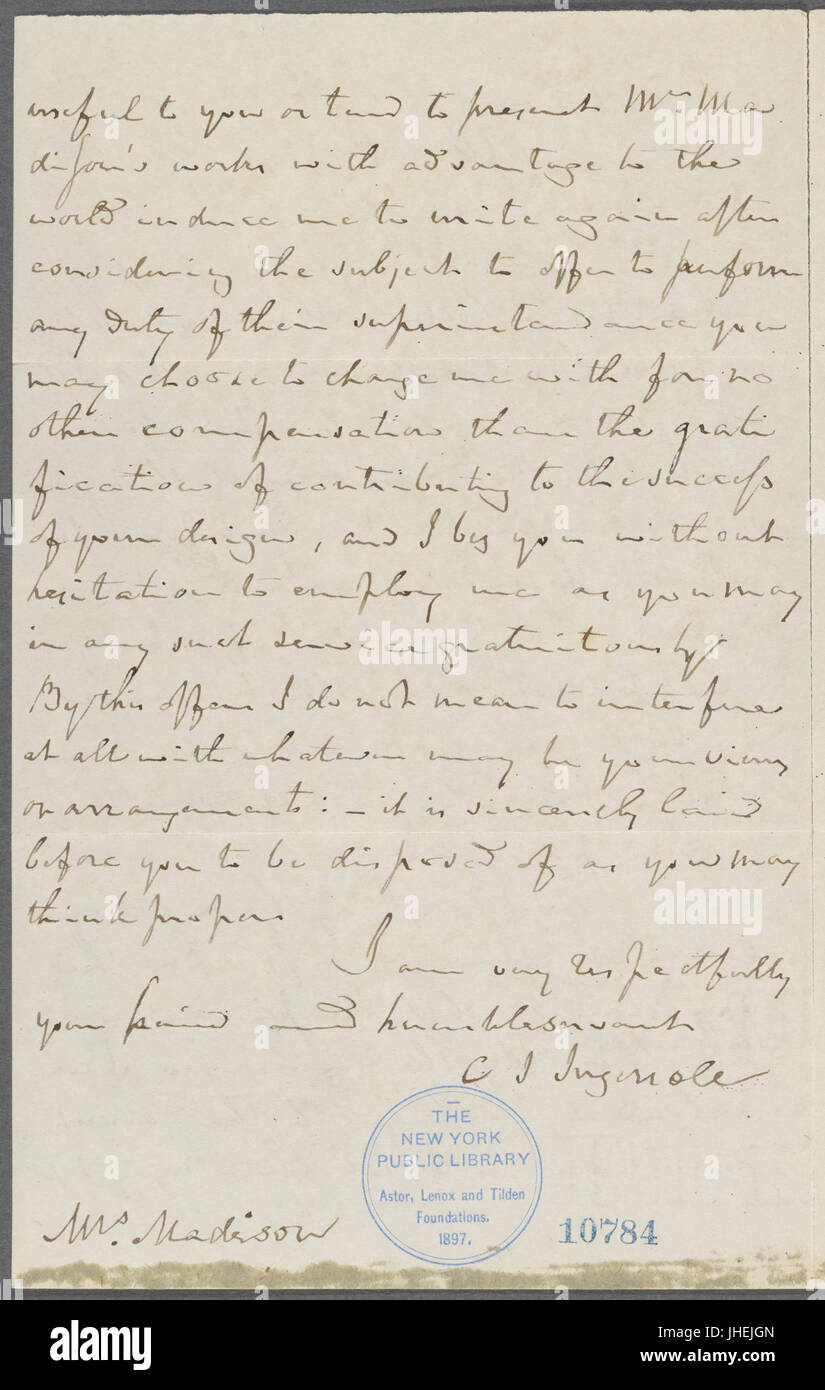 useful to you or tend to present Mr. Ma
dison's works with advantage to the
world induce me to write again after
considering the subject to offer to perform
any duty of their superintendance you
may choose to charge me with for no
other compensation than the grati
fication of contributing to the success
of your design, and I beg you without
hesitation to employ me as you may
in any such service gratuitously
By this offer I do not mean to interfere
at all with whatever may be your views
or arrangements: – it is sincerely laid
before you to be disposed of as you may
think proper
I am very respectfully
your friend and humble servant
C J Ingersoll
THE
NEW YORK
PUBLIC LIBRARY
Astor, Lenox and Tilden
Foundations.
1897.
10784
Mrs. Madison
alamy
Image ID: JHEJGN
www.alamy.com